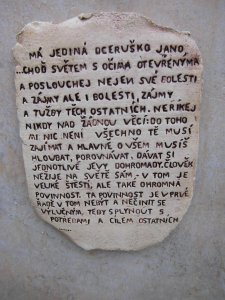 MÁ JEDINÁ DCERUŠKO JANO,
...CHOĎ SVĚTEM S OČIMA OTEVŘENÝMA
A POSLOUCHEJ NEJEN SVÉ BOLESTI
A ZÁJMY ALE I BOLESTI, ZÁJMY
A TUŽBY TĚCH OSTATNÍCH. NEŘÍKEJ
NIKDY NAD ŽÁDNOU VĚCÍ: DO TOHO
MI NIC NENÍ VŠECHNO TĚ MUSÍ
ZAJÍMAT A HLAVNĚ O VŠEM MUSÍŠ
HLOUBAT, POROVNÁVAT, DÁVAT SI
JEDNOTLIVÉ JEVY DOHROMADY. ČLOVĚK
NEŽIJE NA SVĚTĚ SÁM - V TOM JE
VELIKÉ ŠTĚSTÍ, ALE TAKÉ OHROMNÁ
POVINNOST. TA POVINNOST JE V PRVÉ
ŘADĚ V TOM NEBÝT A NEČINIT SE
VÝLUČNÝM, TEDY SPLYNOUT S
POTŘEBAMI A CÍLEM OSTATNÍCH
......